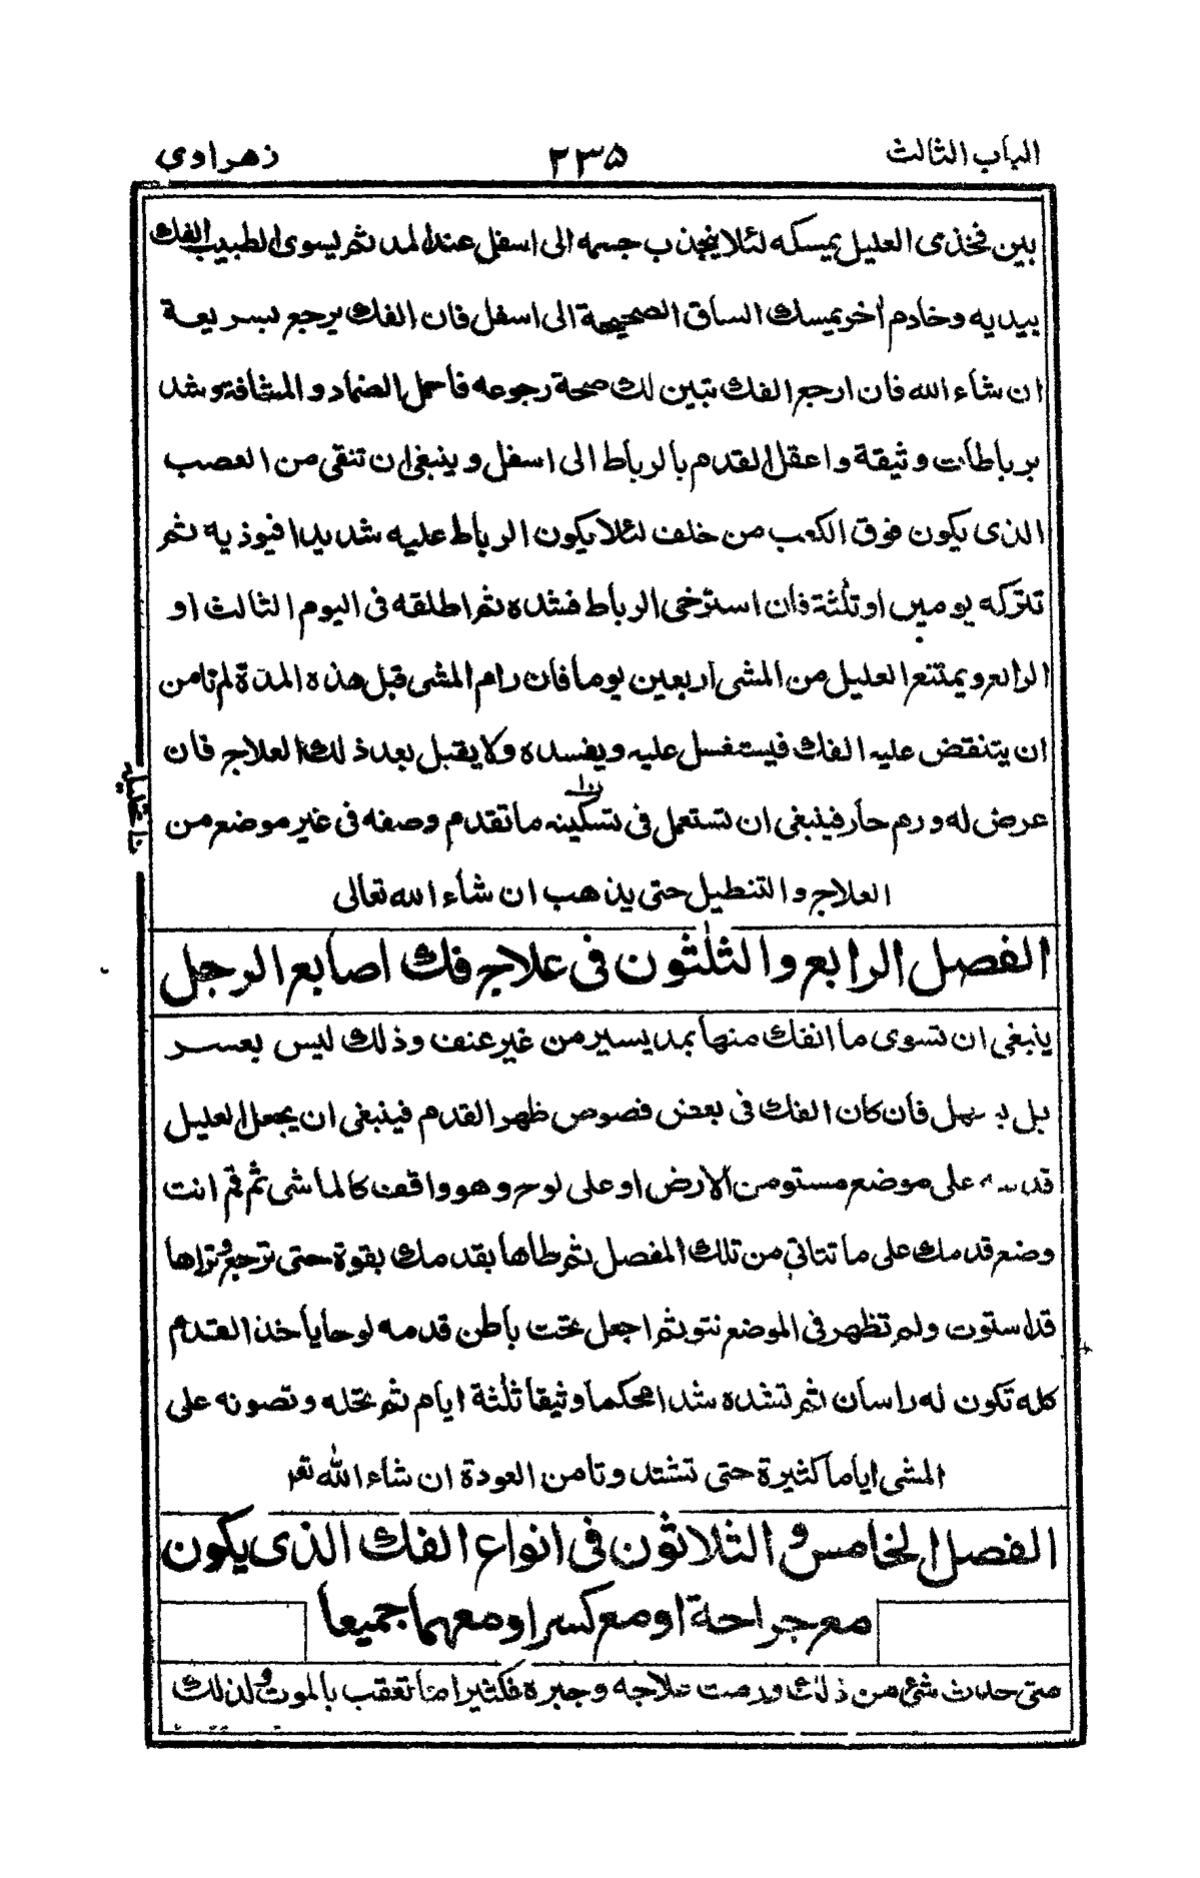 الباب الثالث ٢٣٥ زهراوی
بين فخذی العليل يمسكه لئلا ينجذب جسمه الی اسفل عند المد ثم يسوی الطبيب الفك
بيديه وخادم أخر يمسك الساق الصحيحة الی اسفل فان الفك يرجع بسريعة
ان شاء الله فان ارجع الفك تبين لك صحة رجوعه فاحمل الضماد و المشاقة وشد
برباطات وثيقة واعقل القدم بالرباط الی اسفل وينبغی ان تنقی من العصب
الذی يكون فوق الكعب من خلف لئلا يكون الرباط عليه شديدا فيوذيه ثم
تتركه يومين او ثلٰثة فان استرخی الرباط فشده ثم اطلقه فی اليوم الثالث او
الرابع ويمتنع العليل من المشی اربعين يوما فان رام المشی قبل هذه المدة لم تامن
ان ينتقض عليه الفك فيستغسل عليه ويفسده ولا يقبل بعد ذلك العلاج فان
عرض له ورم حار فينبغی ان تستعمل فی تسكينه ما تقدم وصفه فی غير موضع من
العلاج والتنطيل حتی يذهب ان شاء الله تعالی
الفصل الرابع والثلٰثون فی علاج فك اصابع الرجل
ينبغی ان تسوی ما انفك منها بمد يسير من غير عنف وذلك ليس بعسر
بل يسهل فان كان الفك فی بعض فصوص ظهر القدم فينبغی ان يجعل العليل
قدمه علی موضع مستو من الارض او علی لوح وهو واقف كالماشی ثم قم انت
وضع قدمك علی ما تتاتی من تلك المفصل ثم طاها بقدمك بقوة حتی ترجع وتراها
قد استوت ولم تظهر فی الموضع نتو ثم اجعل تحت باطن قدمه لوحا ياخذ القدم
كله تكون له راسان ثم تشده شدا محكما وثيقا ثلٰثة ايام ثم تحله وتصونه علی
المشی اياما كثيرة حتی تشتد وتامن العودة ان شاء الله تعٰ
الفصل الخامس و الثلاثون فی انواع الفك الذی يكون
مع جراحة او مع كسر او معهما جميعا
متی حدث شیٔ من ذلك ورمت علاجه وجبره فكثيرا ما تعقب بالموت ولذلك